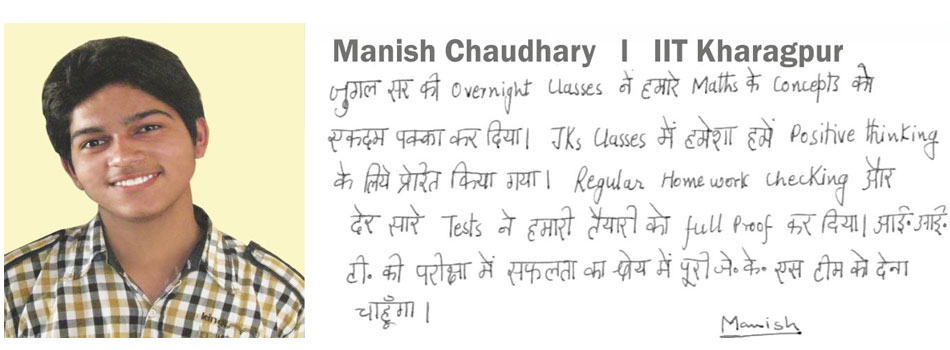 Manish Chaudhary | IIT Kharagpur
जुगल सर की Overnight Classes ने हमारे Maths के Concepts को
एकदम पक्का कर दिया। JKs Classes में हमेशा हमें Positive thinking
के लिये प्रेरित किया गया। Regular Homework checking और
देर सारे Tests ने हमारी तैयारी को full Proof कर दिया। आई॰ आई॰
टी॰ की परीक्षा में सफलता का श्रेय में पूरी जे॰ के॰ एस टीम को देना
चाहूँगा।
Manish